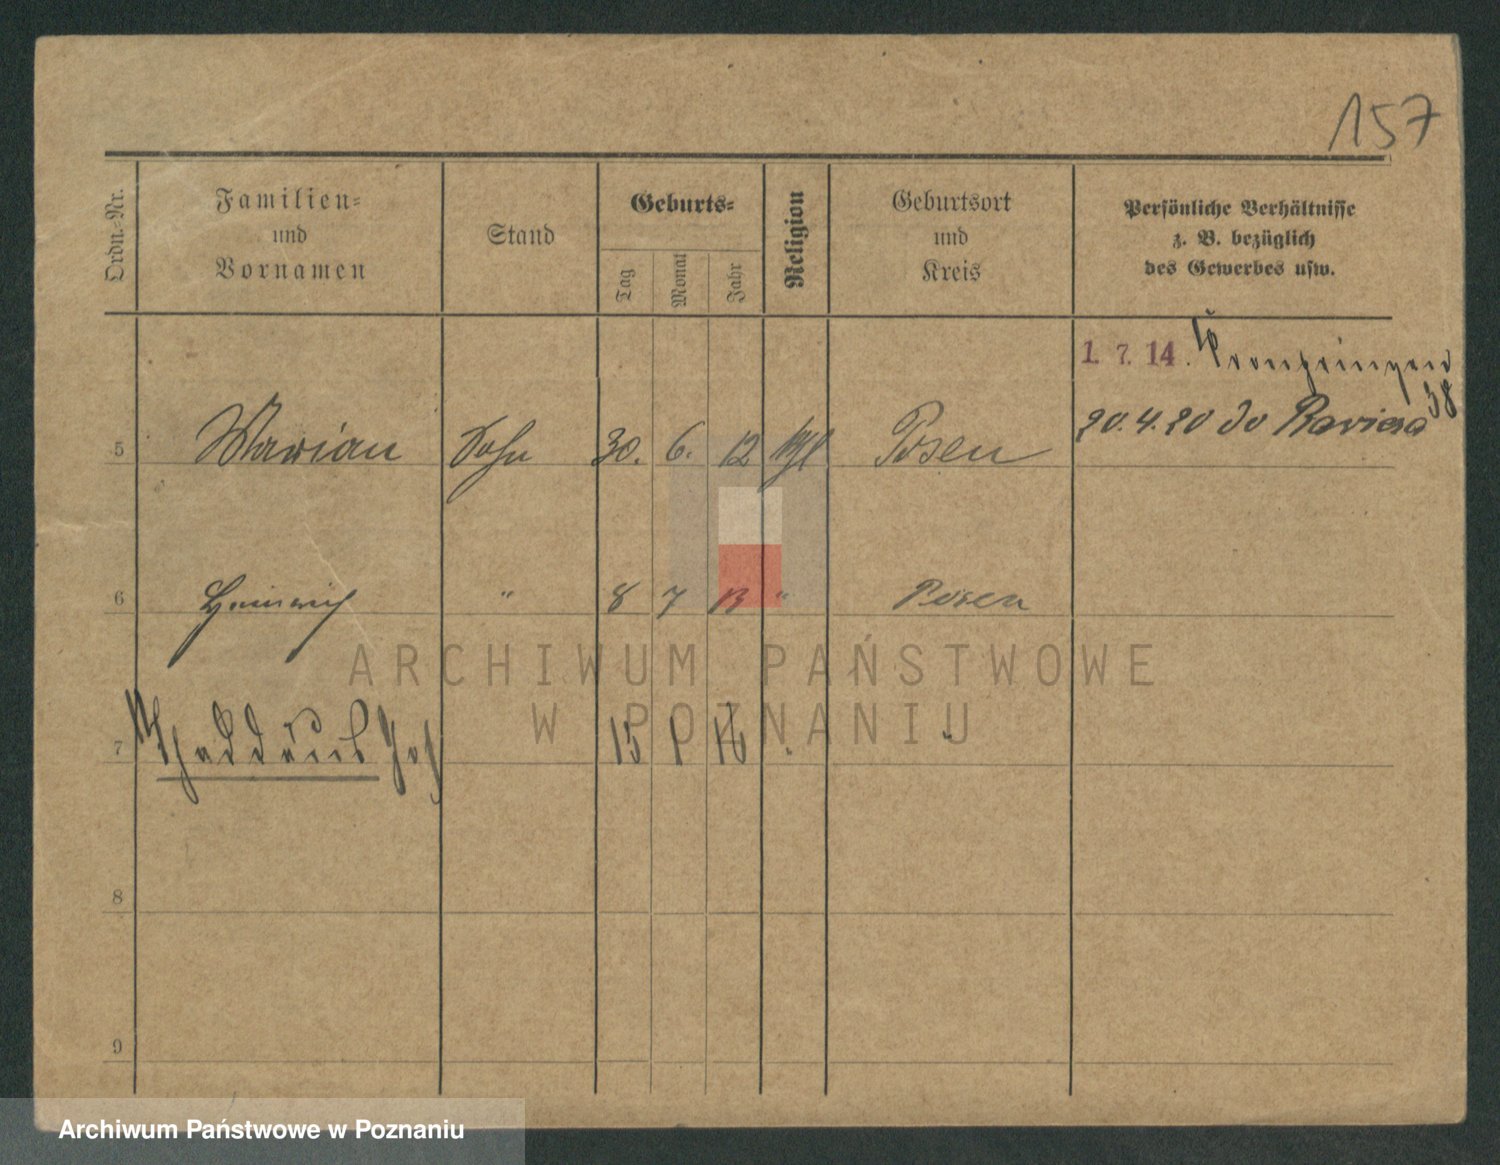 157
Ordn.-Nr.
Familien-
und
Vornamen
Stand
Geburts-
Tag
Monat
Jahr
Religion
Geburtsort
und
Kreis
Persönliche Verhältnisse
z. B. bezüglich
des Gewerbes usw.
1. 7. 14. Kronprinzen
38
5 Marian Sohn 30. 6. 12 Posen 20.4.20 do Rawicza
6 Heinrich " 8 7 13 " Posen
7 Thaddäus 15 1 16 " "
8
9
ARCHIWUM PAŃSTWOWE
W POZNANIU
Archiwum Państwowe w Poznaniu